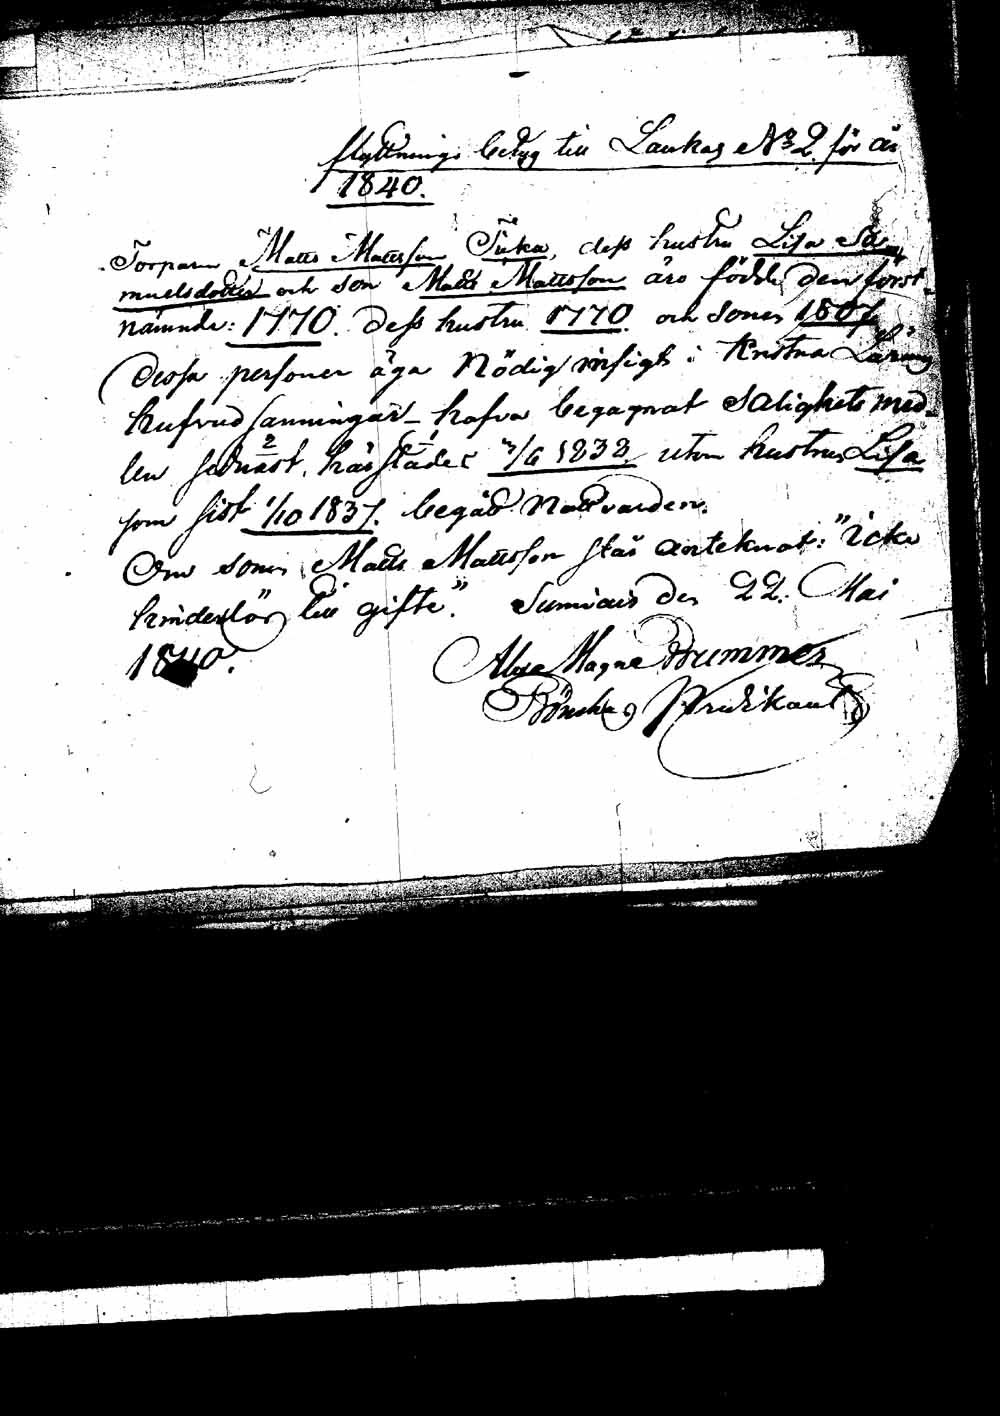 flyttnings betyg till Laukas N:o 2. för år
1840.
Torparn Matts Mattsson Tiika, dess hustru Lisa Sa-
muelsdotter och son Matts Mattsson äro födde den först-
nämnde: 1770. dess hustru 1770. och sonen 1807.
Dessa personer äga Nödig insigt i Kristna Lärans
hufvud sanningar – hafva begagnat Salighets med-
len sednast härstädes 3/6 1838. utom hustrun Lisa
som sist 1/10 1837. begådt Nattvarden.
Om sonen Matts Mattsson står anteknat: "icke
hinderlös till gifte". Sumiais den 22. Mai
1840.
Magn Brummer
Predikant